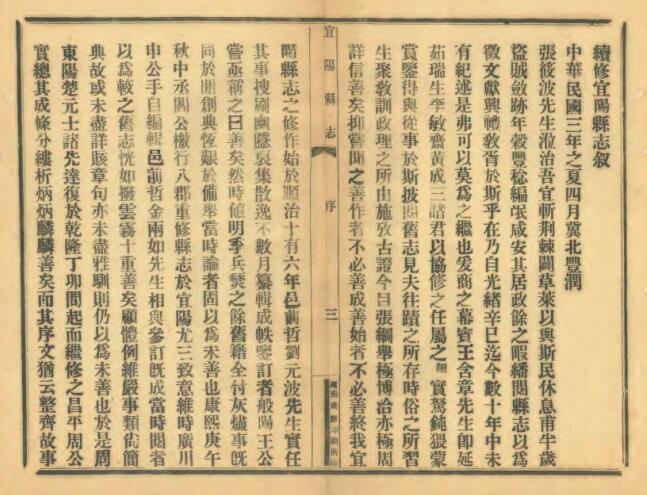 續修宜陽縣志叙
中華民國三年之夏四月冀北豐潤
張筱波先生涖治吾宜斬荆棘闢草萊以與斯民休息甫半歲
盜賊斂跡年穀豐稔編氓咸安其居政餘之暇繙閱縣志以爲
徵文獻興禮教胥於斯乎在乃自光緒辛巳迄今數十年中未
有紀述是弗可以莫爲之繼也爰商之幕賓王含章先生卽延
茹瑞生李敏齋黃成三諸君以協修之任屬之 實駑鈍猥蒙
賞鑒得與從事於斯披閱舊志見夫往蹟之所存時俗之所習
生聚教訓政理之所由施攷古證今日張綱舉極博洽亦極周
詳信善矣抑嘗聞之善作者不必善成善始者不必善終我宜
宜陽縣志
序
三
陽縣志之修作始於順治十有六年邑前哲劉元波先生實任
其事搜剔幽隱裒集散逸不數月纂輯成帙鑒訂者般陽王公
嘗亟稱之曰善矣然時値明季兵燹之餘舊籍全付灰燼事旣
同於開創典恆艱於備舉當時論者固以爲未善也康熙庚午
秋中丞閻公檄行八郡重修縣志於宜陽尤三致意維時廣川
申公手自編輯邑前哲金兩如先生相與參訂旣成當時閱者
以爲較之舊志恍如撥雲霧十重善矣顧體例雖嚴事類尙簡
典故或未盡詳賅章句亦未盡雅馴則仍以爲未善也於是周
東陽楚元士諸先達復於乾隆丁卯間起而繼修之昌平周公
實總其成條分縷析炳炳麟麟善矣而其序文猶云整齊故事